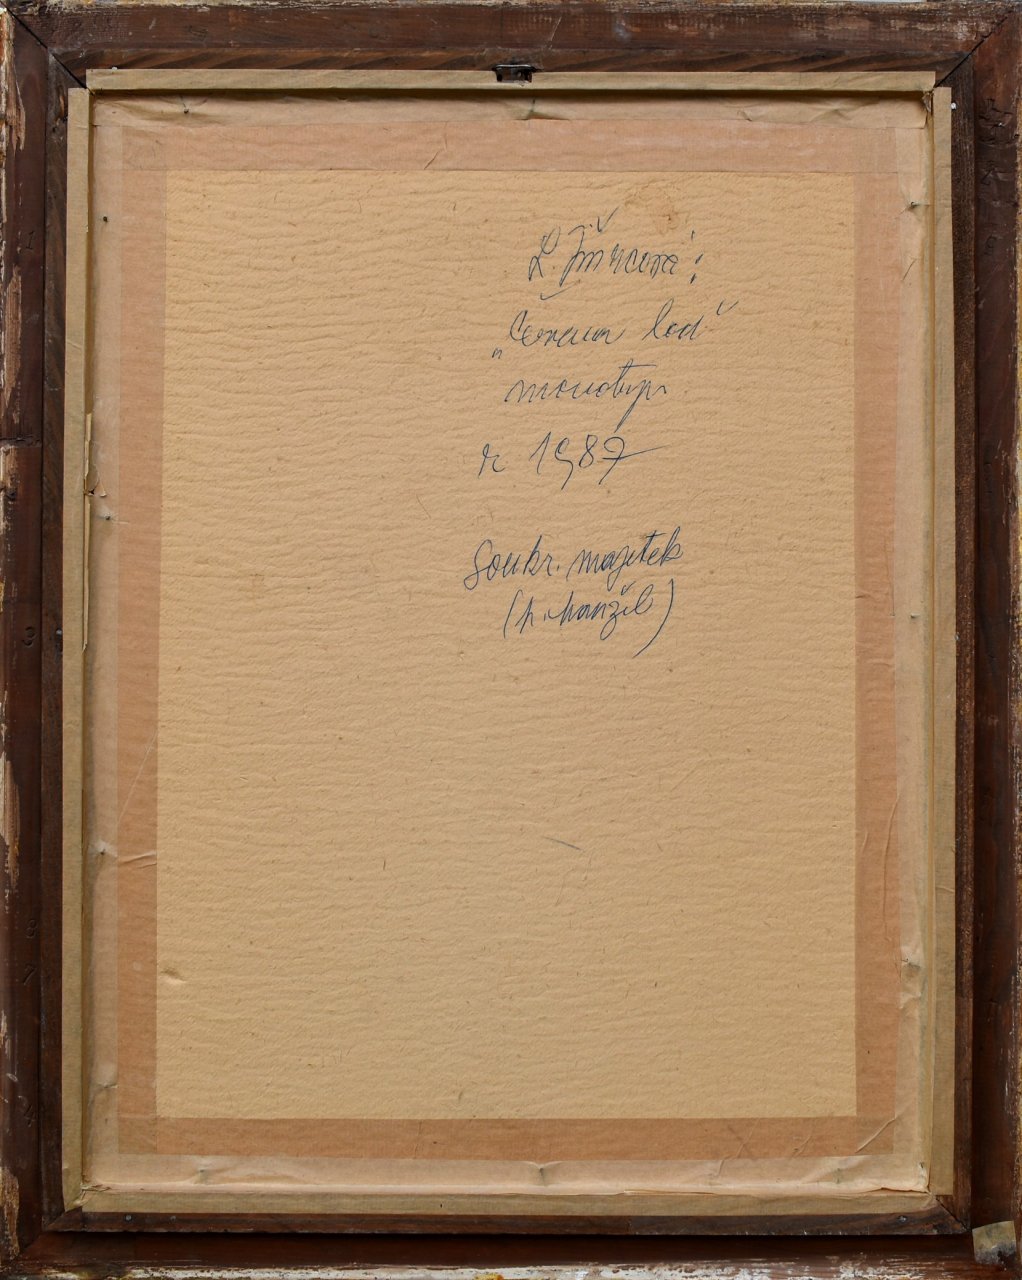 L. Jiřincová:
„Červená loď"
monotyp.
r 1987
Soukr. majetek
(h. hanžel)